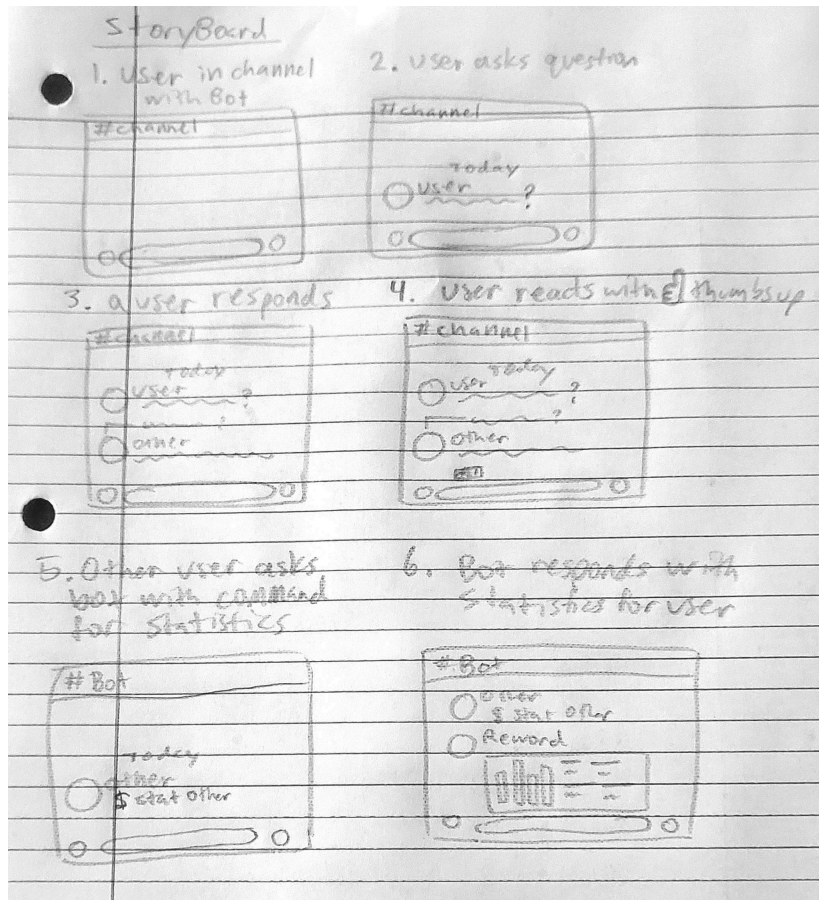 StoryBoard
1. User in channel
with Bot
#channel
2. User asks question
#channel
Today
User
?
3. a user responds
#channel
Today
User
?
?
other
4. User reads with thumbsup
#channel
Today
User
?
?
other
5. Other user asks
bot with command
for statistics
#Bot
Today
other
$ stat other
6. Bot responds with
Statistics for user
#Bot
other
$ stat other
Reword